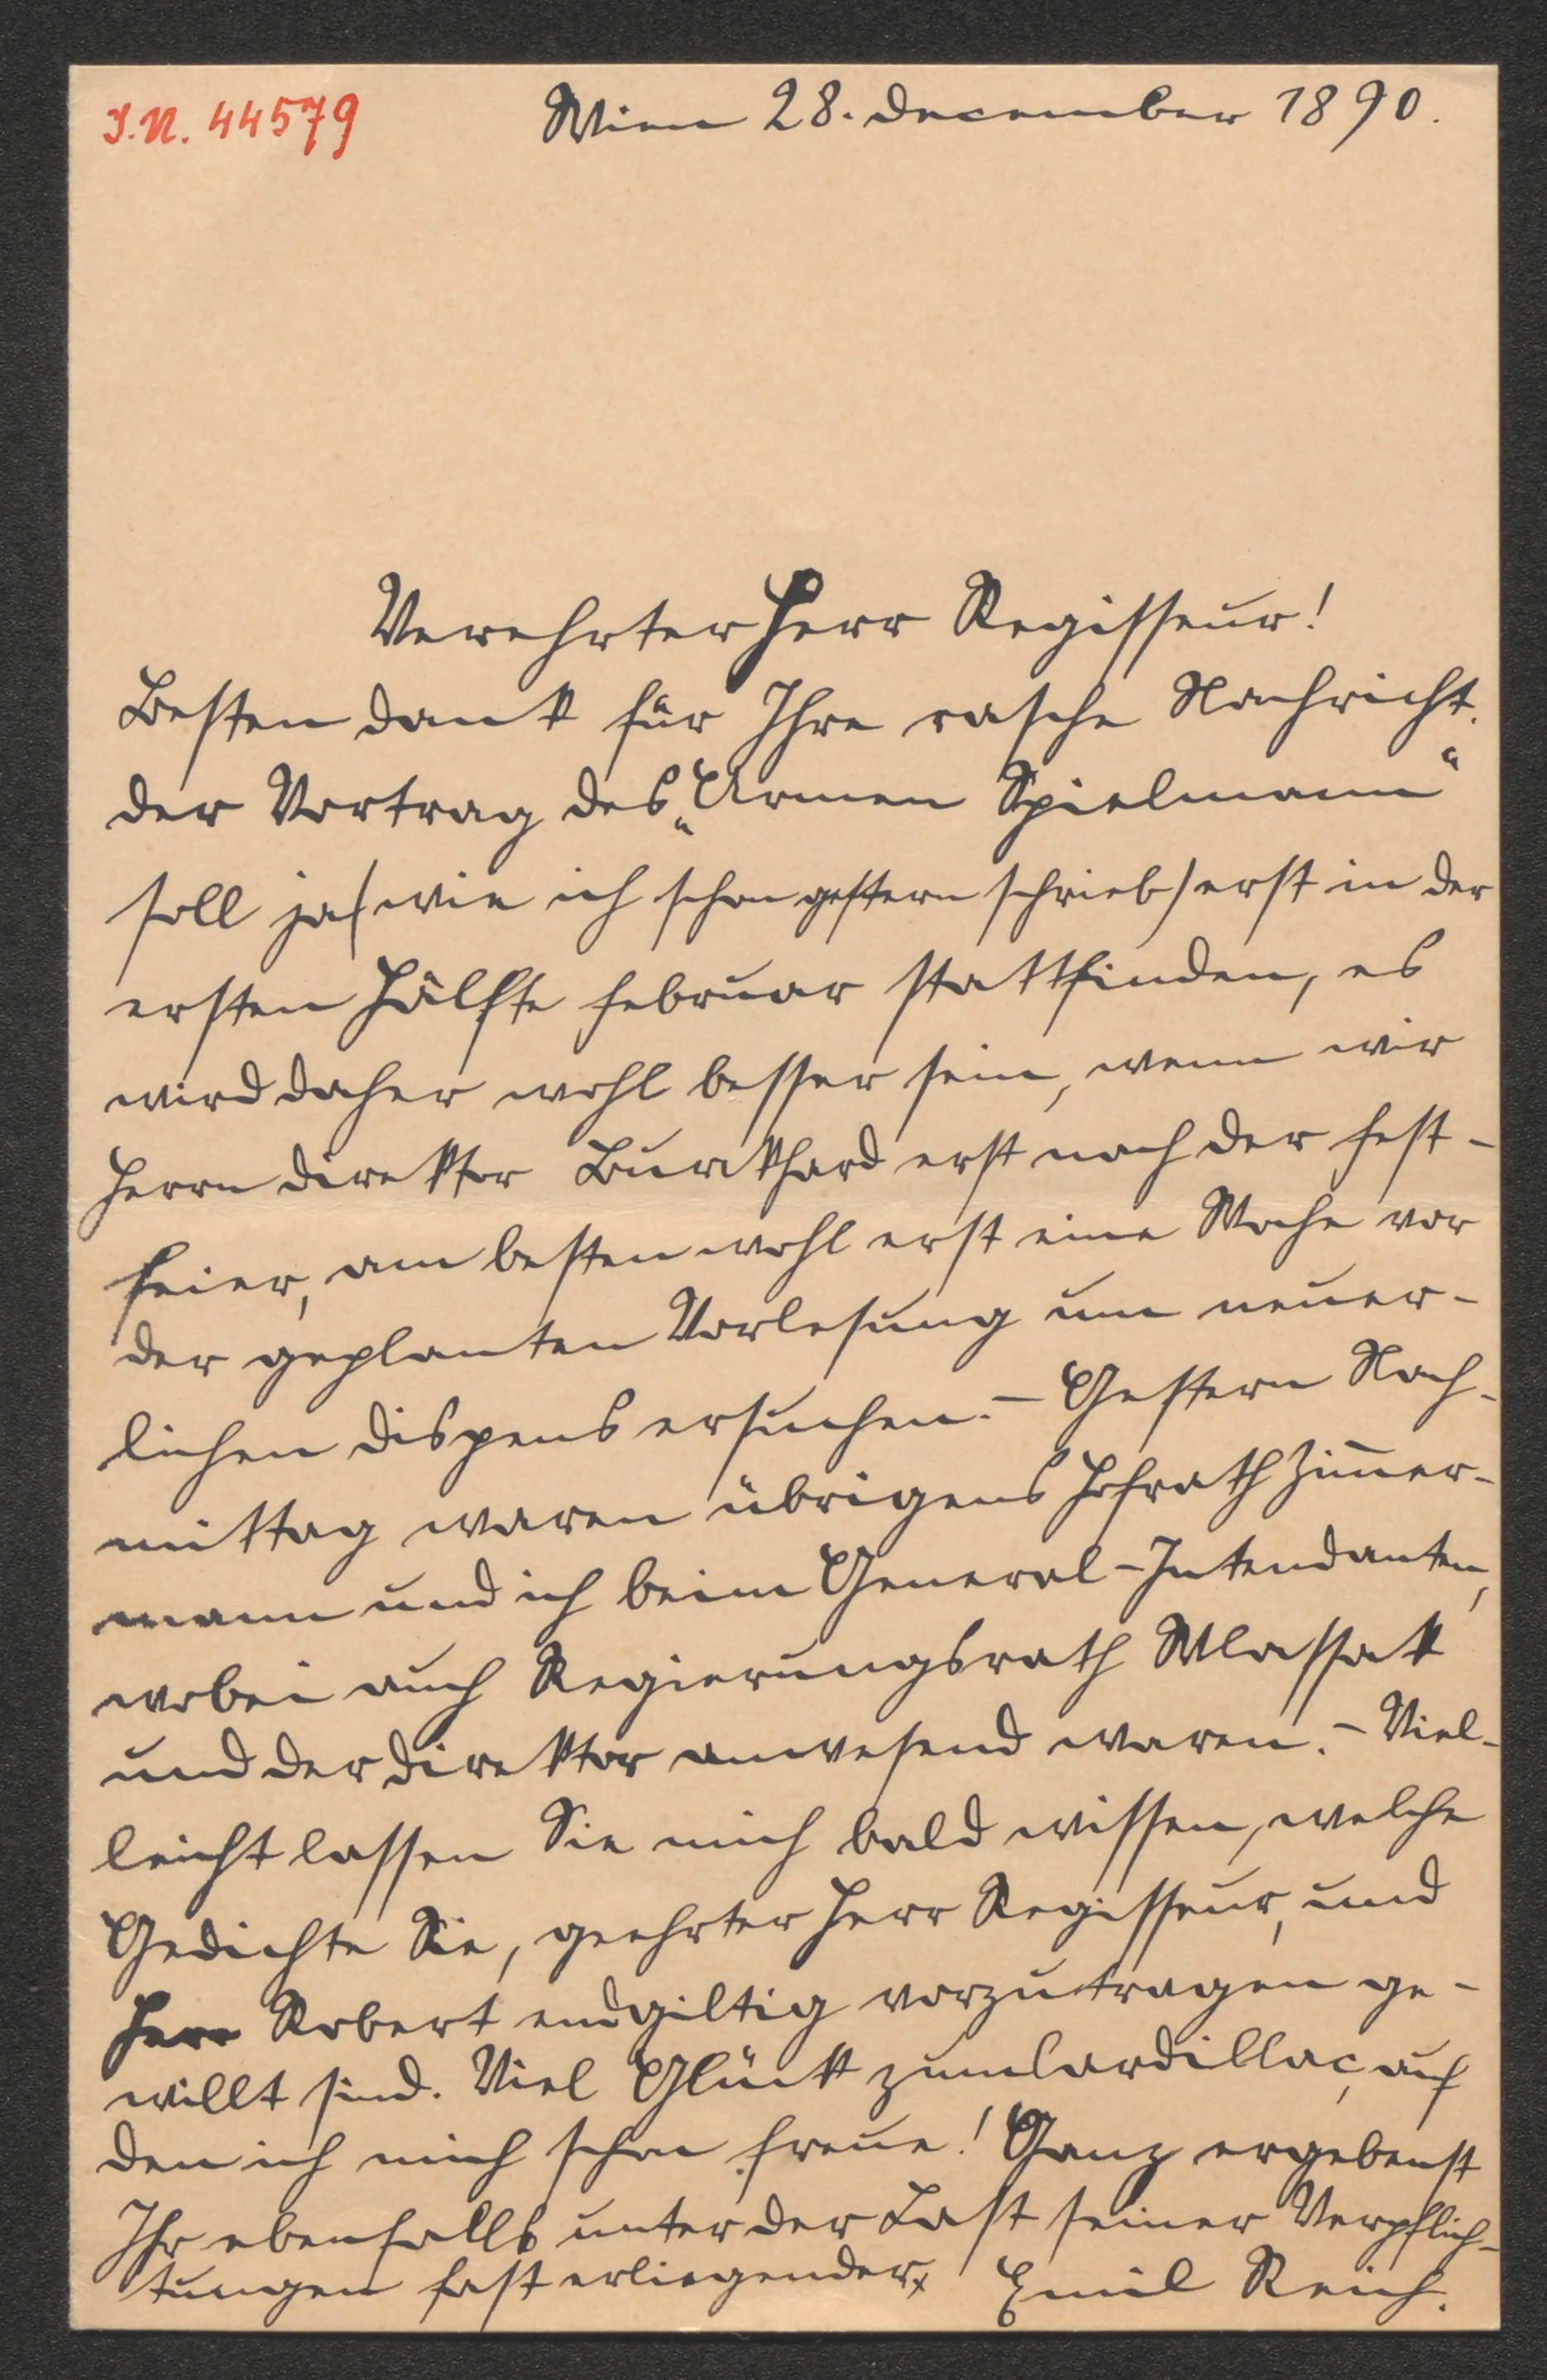 I.N. 44579
Wien 28. December 1890.
Verehrter Herr Regisseur!
Besten Dank für Ihre rasche Nachricht.
Der Vortrag des „Armen Spielmann“
soll ja (wie ich schon gestern schrieb) erst in der
ersten Hälfte Februar stattfinden, es
wird daher wohl besser sein, wenn wir
Herrn Direktor Burckhard erst nach der Fest-
feier, am besten wohl erst eine Woche vor
der geplanten Vorlesung um neuer-
lichen Dispens ersuchen. – Gestern Nach-
mittag waren übrigens Hofrath Zim̅er-
mann und ich beim General-Intendanten,
wobei auch Regierungsrath Wlassak
und der Direktor anwesend waren. – Viel-
leicht lassen Sie mich bald wissen, welche
Gedichte Sie, geehrter Herr Regisseur, und
Herr Robert endgiltig vorzutragen ge-
willt sind. Viel Glück zum Cardillac, auf
den ich mich schon freue! Ganz ergebenst
Ihr ebenfalls unter der Last seiner Verpflich-
tungen fast erliegender Emil Reich.